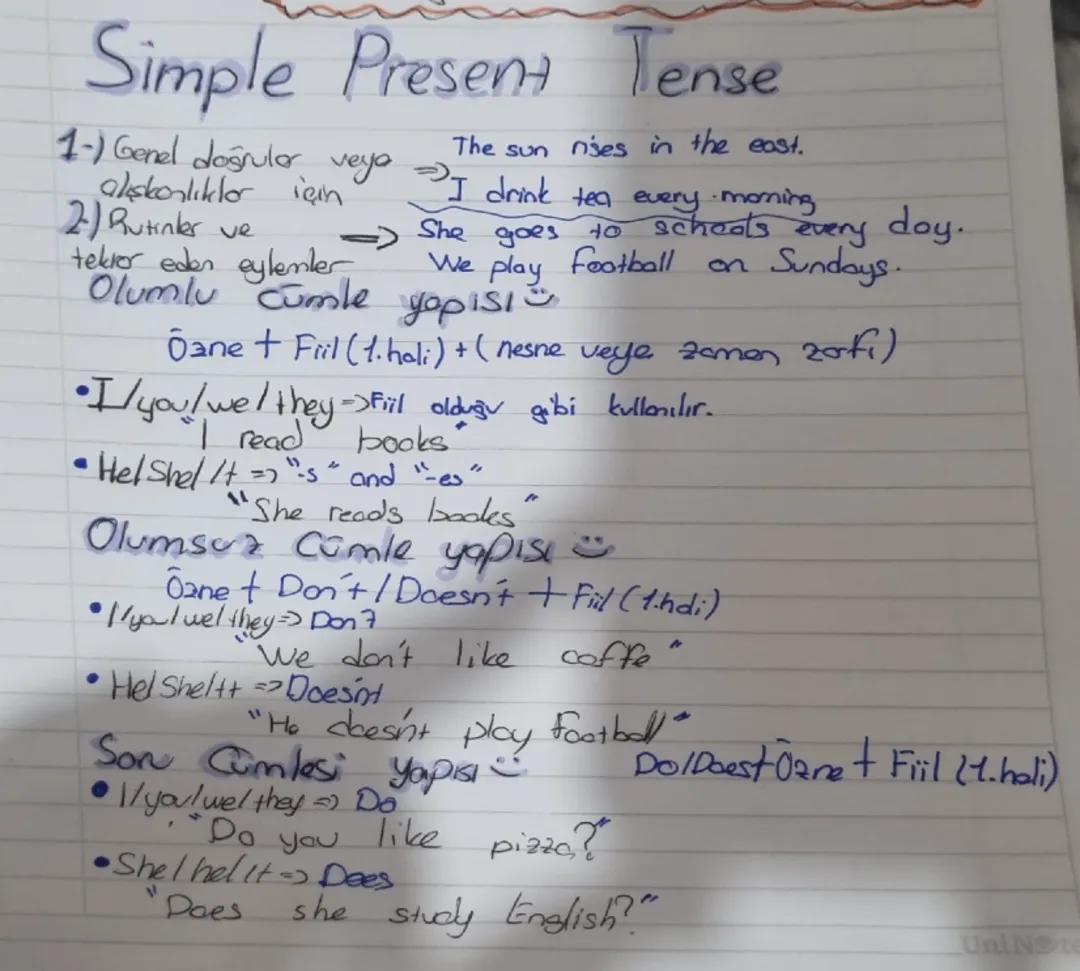 Simple Present Tense
1-) Genel doğrular veya => The sun rises in the east.
alışkanlıklar için I drink tea every morning
2-) Rutinler ve => She goes to schools every day.
tekrar eden eylemler We play football on Sundays.
Olumlu cümle yapısı
Özne + Fiil (1.hali) + (nesne veya zaman zarfı)
•I/you/we/they => Fiil olduğu gibi kullanılır.
"I read books"
•He/She/It => "-s" and "-es"
"She reads books"
Olumsuz Cümle yapısı
Özne + Don't / Doesn't + Fiil (1.hali)
•I/you/we/they => Don't
"We don't like coffe"
•He/She/It => Doesn't
"He doesn't play football"
Soru Cümlesi yapısı Do/Does + Özne + Fiil (1.hali)
•I/you/we/they => Do
"Do you like pizza?"
•She/he/It => Does
"Does she study English?"
UniNote